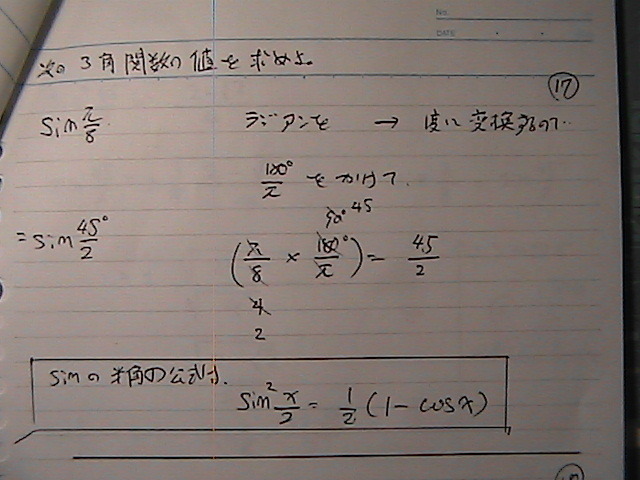 No.
DATE
次の 3角関数の値を求めよ。
17
sin π/8 ラジアンを → 度に変換するので…
180°/π をかけて、
90° 45
= sin 45°/2 (π/8 × 180°/π) = 45/2
4
2
sinの半角の公式は、
sin² x/2 = 1/2 (1 - cosx)